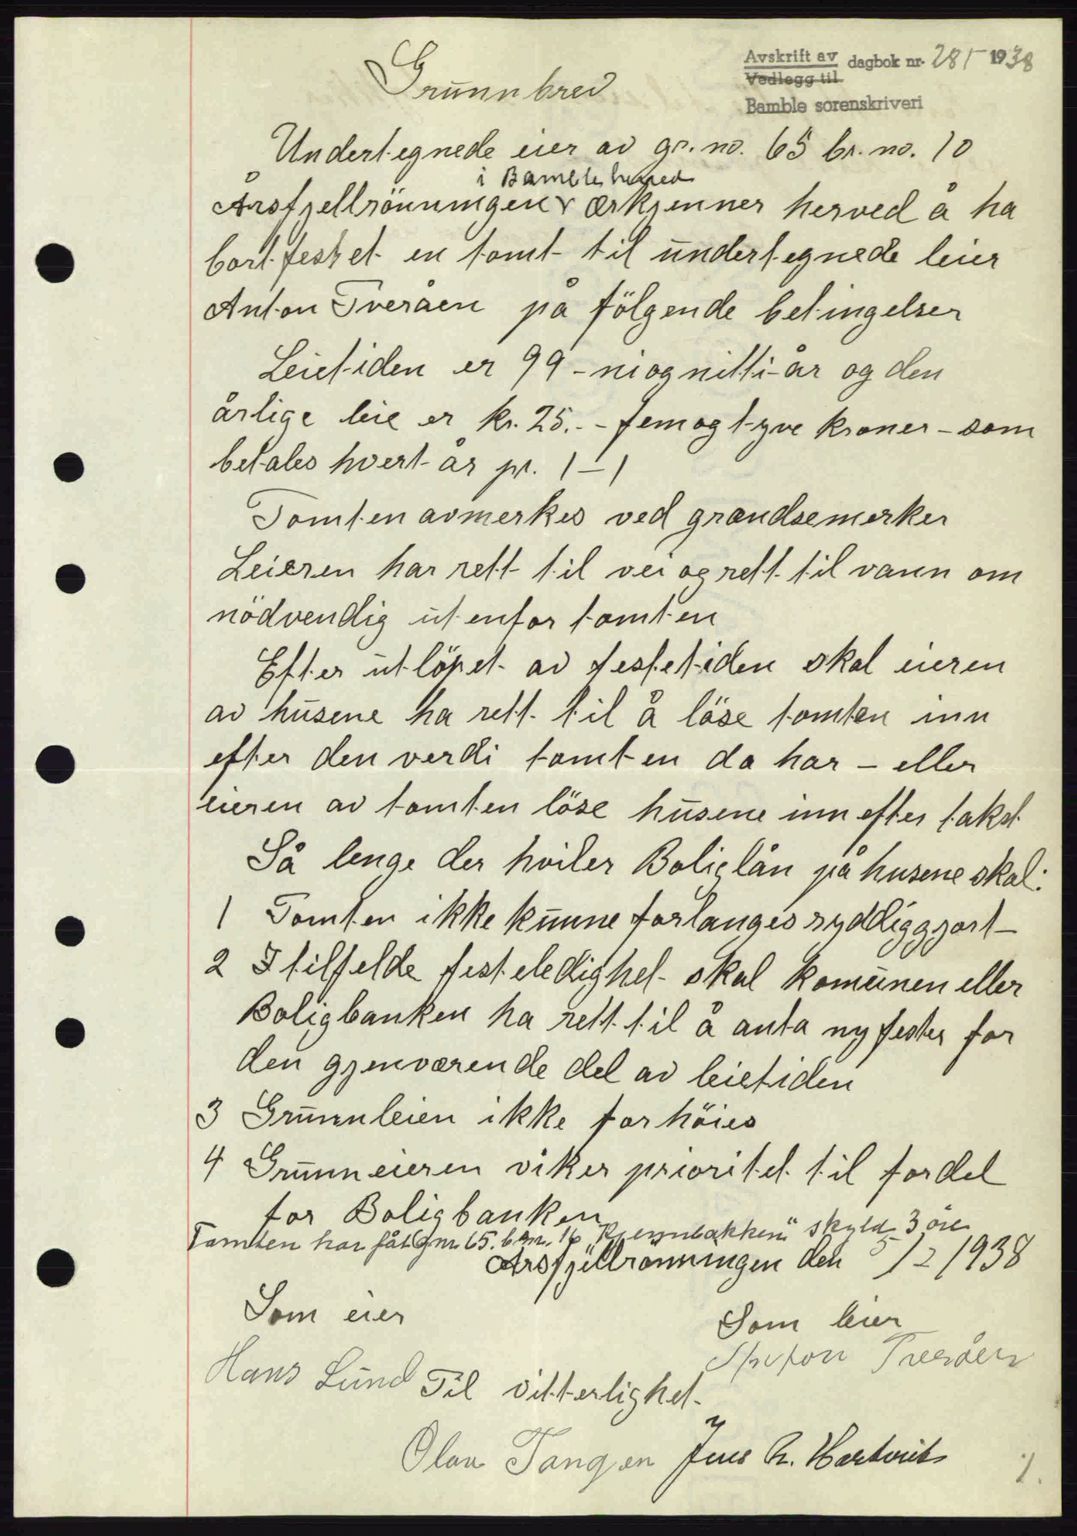 Avskrift av dagbok nr. 285 1938
Vedlegg til
Bamble sorenskriveri
Grunnbrev
Undertegnede eier av gr. no. 65 br. no. 10
i Bamble herred
Årsfjellrönningen v ærkjenner herved å ha
bortfestet en tomt til undertegnede leier
Anton Tveråen på fölgende betingelser
Leietiden er 99 - niognitti - år og den
årlige leie er kr. 25.- - femogtyve kroner - som
betales hvert år pr. 1 - 1
Tomten avmerkes ved grændsemerker
Leieren har rett til vei og rett til vann om
nödvendig utenfor tomten
Efter utlöpet av festetiden skal eieren
av husene ha rett til å löse tomten inn
efter den verdi tomten da har - eller
eieren av tomten löse husene inn efter takst
Så lenge der hviler Boliglån på husene skal:
1 Tomten ikke kunne forlanges ryddiggjort -
2 I tilfelde festeledighet skal komunen eller
Boligbanken ha rett til å anta ny fester for
den gjenværende del av leietiden
3 Grunnleien ikke forhöies
4 Grunneieren viker prioritet til fordel
for Boligbanken
Tomten har fåt gnr. 65. bnr. 16 skyld 3 öre
Årsfjellrönningen den 5/2 1938
Som eier
Som leier
Hans Lund
Anton Tveråen
Til vitterlighet
Olav Tangen Jens